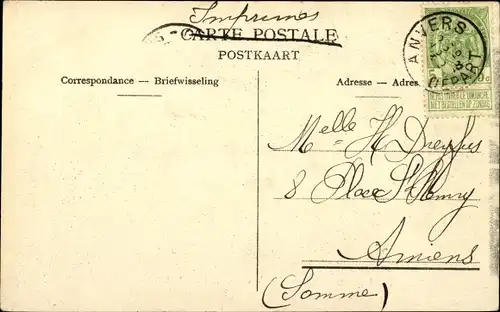 Imprimés
CARTE POSTALE
POSTKAART
Correspondance — Briefwisseling
Adresse — Adres
ANVERS
DEPART
NE PAS LIVRER LE DIMANCHE
NIET BESTELLEN OP ZONDAG
Melle H Dreyfus
8 Place St Remy
Amiens
(Somme)